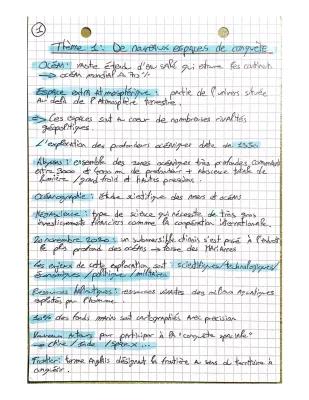 1
Thème 1 : De nouveaux espaces de conquête
Océan : vaste étendue d'eau salé qui entoure les continents
→ océan mondial à 70 %
Espace extra Atmosphérique : partie de l'univers située
au delà de l'Atmosphère terrestre.
→ Ces espaces sont au coeur de nombreuses rivalités
géopolitiques.
L'exploration des profondeurs océaniques date de
Abysses : ensemble des zones océaniques très profondes, comprises
entre 3000 et 6000 m de profondeur + Absence totale de
lumière / grand froid et hautes pressions.
Océanographie : étude scientifique des mers et océans
type de science qui nécessite de très gros
investissements financiers comme la coopération internationale.
20 novembre 2020 : un submersible chinois s'est posé à l'endroit
le plus profond des océans fosse des Mariannes
Les enjeux de cette exploration sont scientifiques/technologiques/
économiques / politique / militaires
Ressources halieutiques : ressources vivantes des milieux Aquatiques
exploités par l'homme.
des fonds marins sont cartographiés avec précision
Nouveaux acteurs pour participer à la "conquête spatiale"
→ Chine / Inde / SpaceX ...
Frontier : terme Anglais désignant la frontière au sens du territoire à
conquérir.